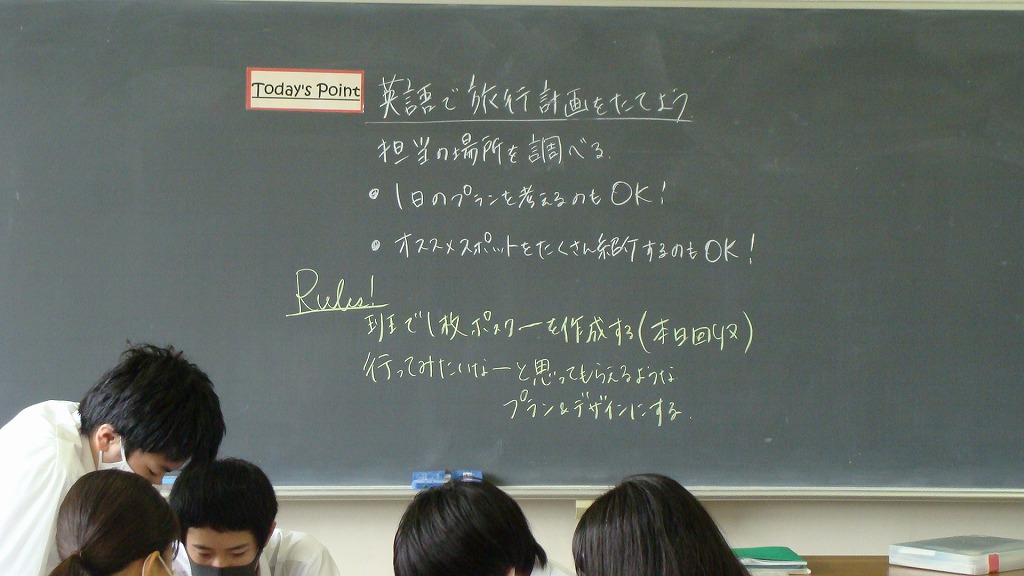 Today's Point 英語で旅行計画をたてよう
担当の場所を調べる.
• 1日のプランを考えるのもOK!
• オススメスポットをたくさん紹介するのもOK!
Rules!
班で1枚ポスターを作成する(本日回収)
行ってみたいなーと思ってもらえるような
プラン&デザインにする.